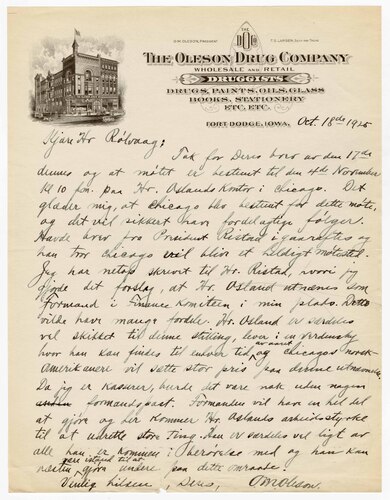 O.M. OLESON, PRESIDENT
T.G. LARSEN, SECY AND TREAS
THE
DOC
THE OLESON DRUG COMPANY
WHOLESALE AND RETAIL
DRUGGISTS
DRUGS, PAINTS, OILS, GLASS
BOOKS, STATIONERY
ETC. ETC.
FORT DODGE, IOWA. Oct. 18de 1925
Kjære Hr Rølvaag;
Tak for Deres brev av den 17de
dennes og at mötet er bestemt til den 4de November
kl 10 fm. paa Hr. Oslands Kontor i Chicago. Det
glæder mig, at Chicago blev bestemt for dette möte,
og det vil sikkert have fordelagtige følger.
Havde brev fra President Ristad igaaraftes og
han tror Chicago vil blive et heldigt mötested.
Jeg har netop skrevet til Hr. Ristad, hvori jeg
gjorde det forslag, at Hr. Osland utnævnes som
Formand i Finance Komiteen i min plads. Dette
vilde have mange fordele. Hr. Osland er særdeles
vel skikket til denne stilling, lever i en verdensby
hvor han kan findes til enhver tid, og Chicagos norsk-
Amerikanere vil sætte stor pris paa denne utnævnelse.
Da jeg er Kasserer, burde det være nok uden nogen
formandspost. Formanden vil have en hel del
at gjøre og her kommer Hr. Oslands arbeidsstyrke
til at utrette store ting. Han er særdeles vel likt av
alle han er kommen i berørelse med og han kan
være istand til at
gjöre undere paa dette omraade.
Venlig hilsen, Deres, O M Oleson.